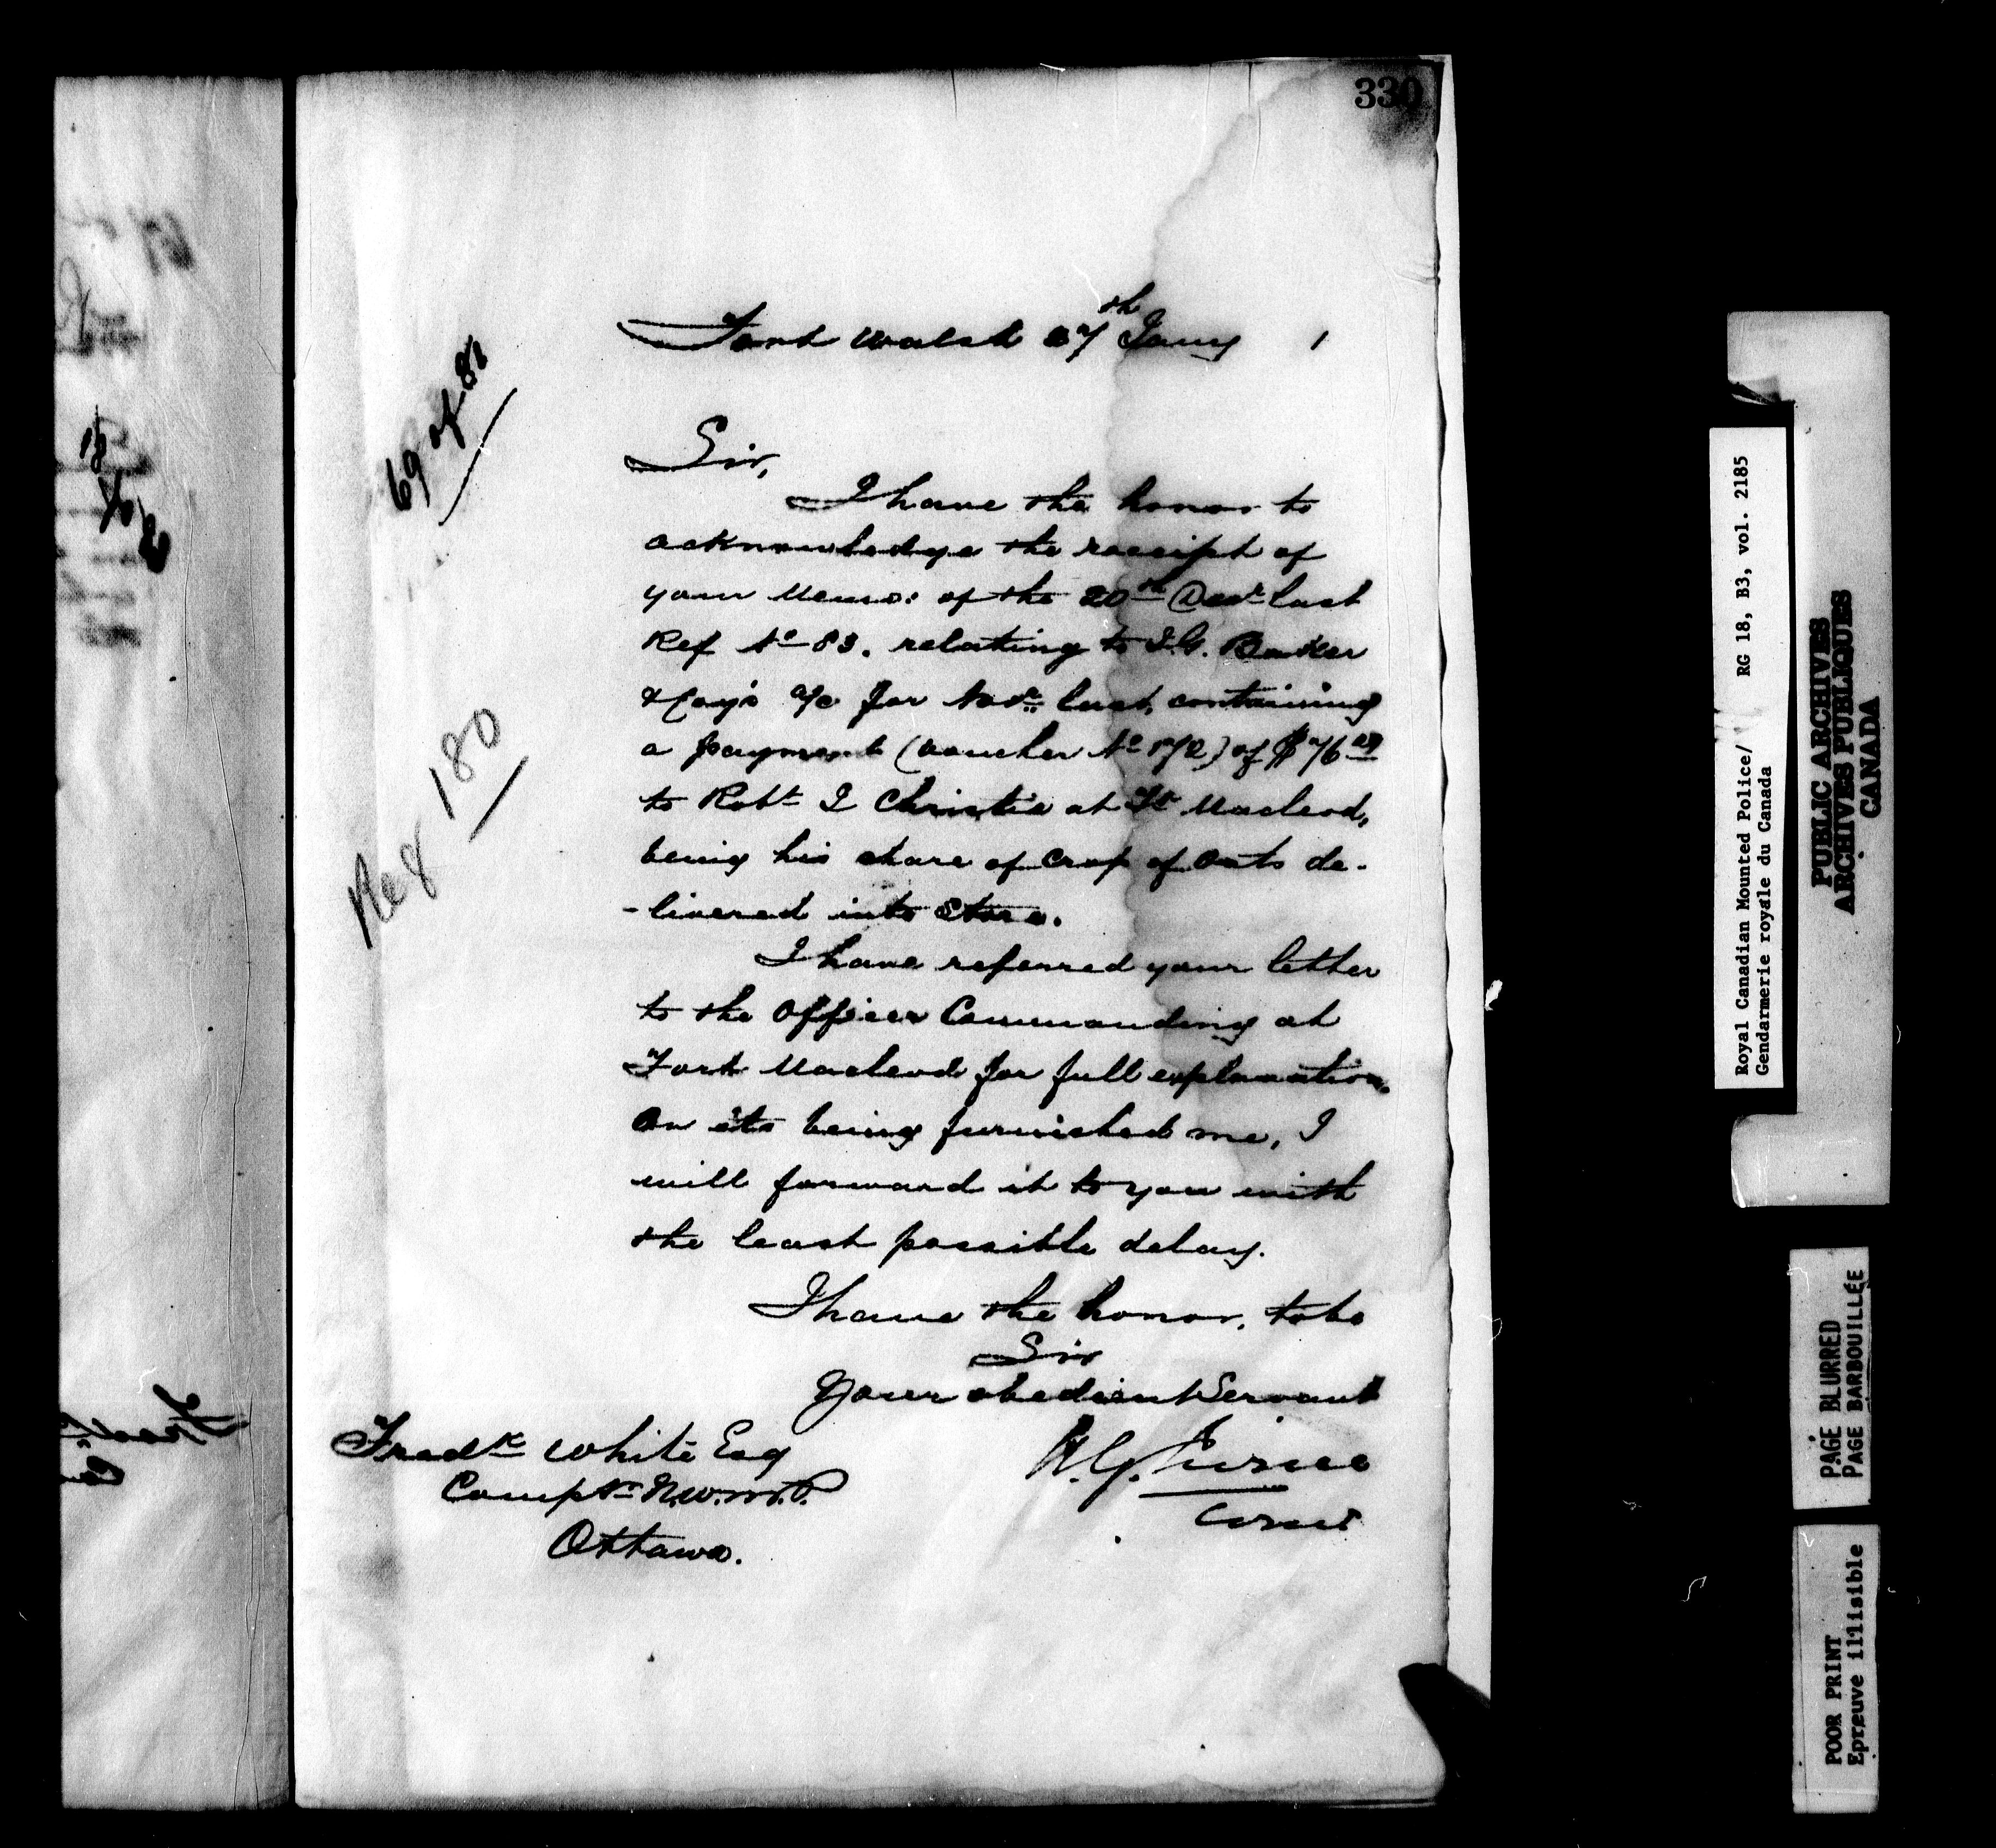 330
Fort Walsh 27th Jany 1
69 of 81
Sir,
I have the honor to
acknowledge the receipt of
your Memo: of the 20th Decr last
Ref No 83. relating to I.G. Baker
& Coy's a/c for Novr last, containing
a payment (voucher No 172) of $76
to Robt I Christie at Ft Macleod,
being his share of Crop of Oats de-
-livered into Store.
Reg 180
I have referred your letter
to the Officer Commanding at
Fort Macleod for full explanation.
On its being furnished me, I
will forward it to you with
the least possible delay.
I have the honor, to be
Sir
Your obedient Servant
A.G. Irvine
Fredk White Esq
Comptr N.W.M.P.
Ottawa.
Royal Canadian Mounted Police/ RG 18, B3, vol. 2185
Gendarmerie royale du Canada
PUBLIC ARCHIVES
ARCHIVES PUBLIQUES
CANADA
PAGE BLURRED
PAGE BARBOUILLÉE
POOR PRINT
Epreuve illisible